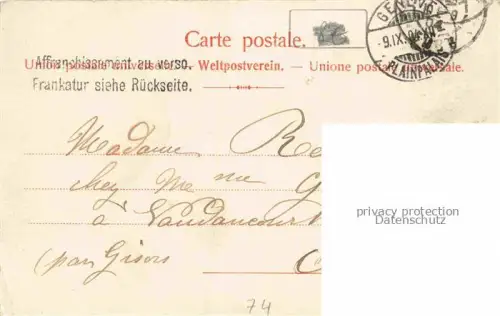 Carte postale.
Union postale universelle. — Weltpostverein. — Unione postale universale.
Affranchissement au verso.
Frankatur siehe Rückseite.
GENÈVE
9.IX.04
PLAINPALAIS
Madame Re
chez Mme G
à Vaudancourt
(par Gisors
privacy protection
Datenschutz
74